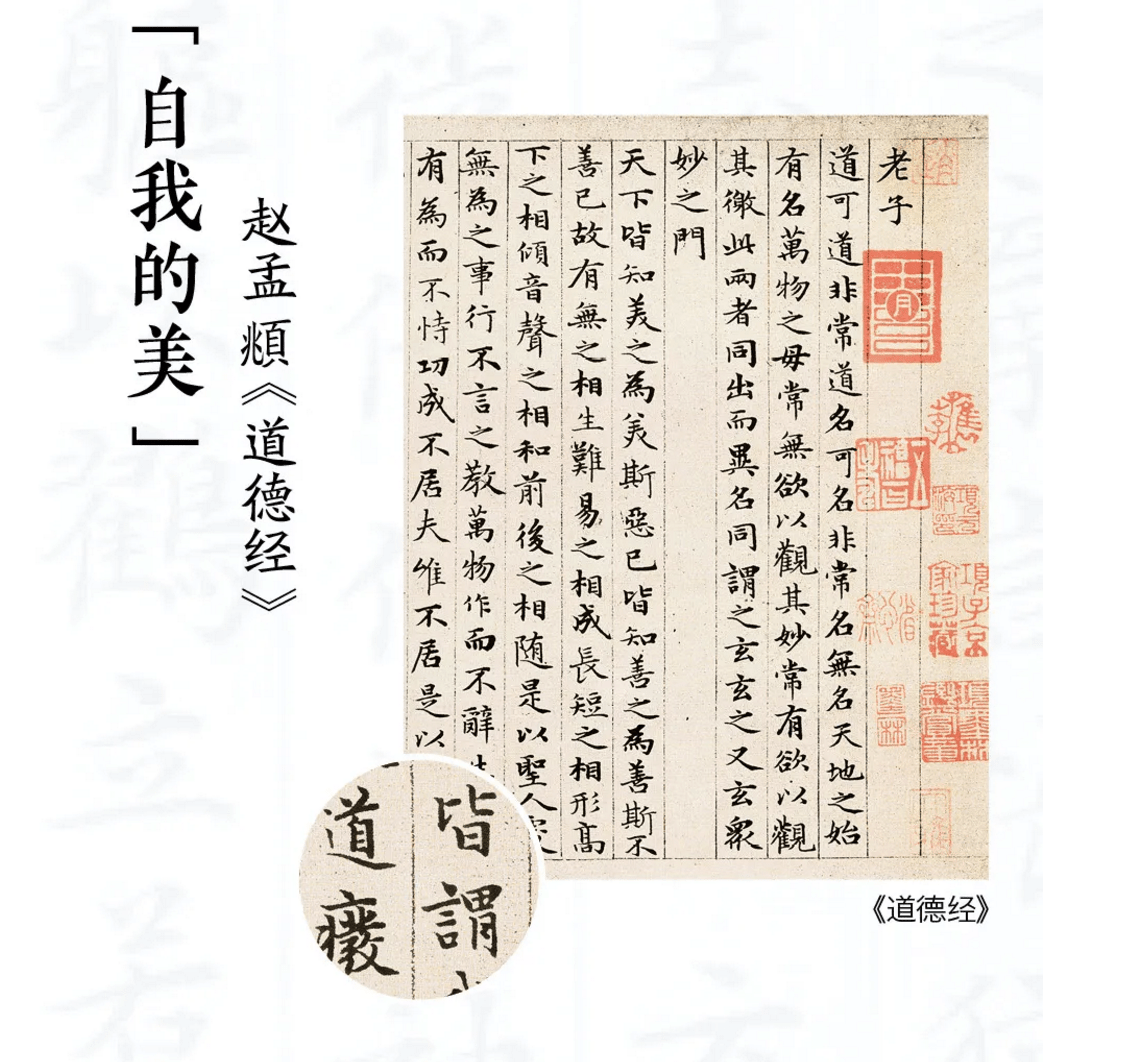 「自我的美」
赵孟頫《道德经》
老子
道可道非常道名可名非常名無名天地之始
有名萬物之毋常無欲以觀其妙常有欲以觀
其徼此兩者同出而異名同謂之玄玄之又玄衆
妙之門
天下皆知美之為美斯惡已皆知善之為善斯不
善已故有無之相生難易之相成長短之相形高
下之相傾音聲之相和前後之相随是以聖人
無為之事行不言之教萬物作而不辭
有為而不恃功成不居夫唯不居是以
皆謂
道癈
項子京
家珍藏
《道德经》